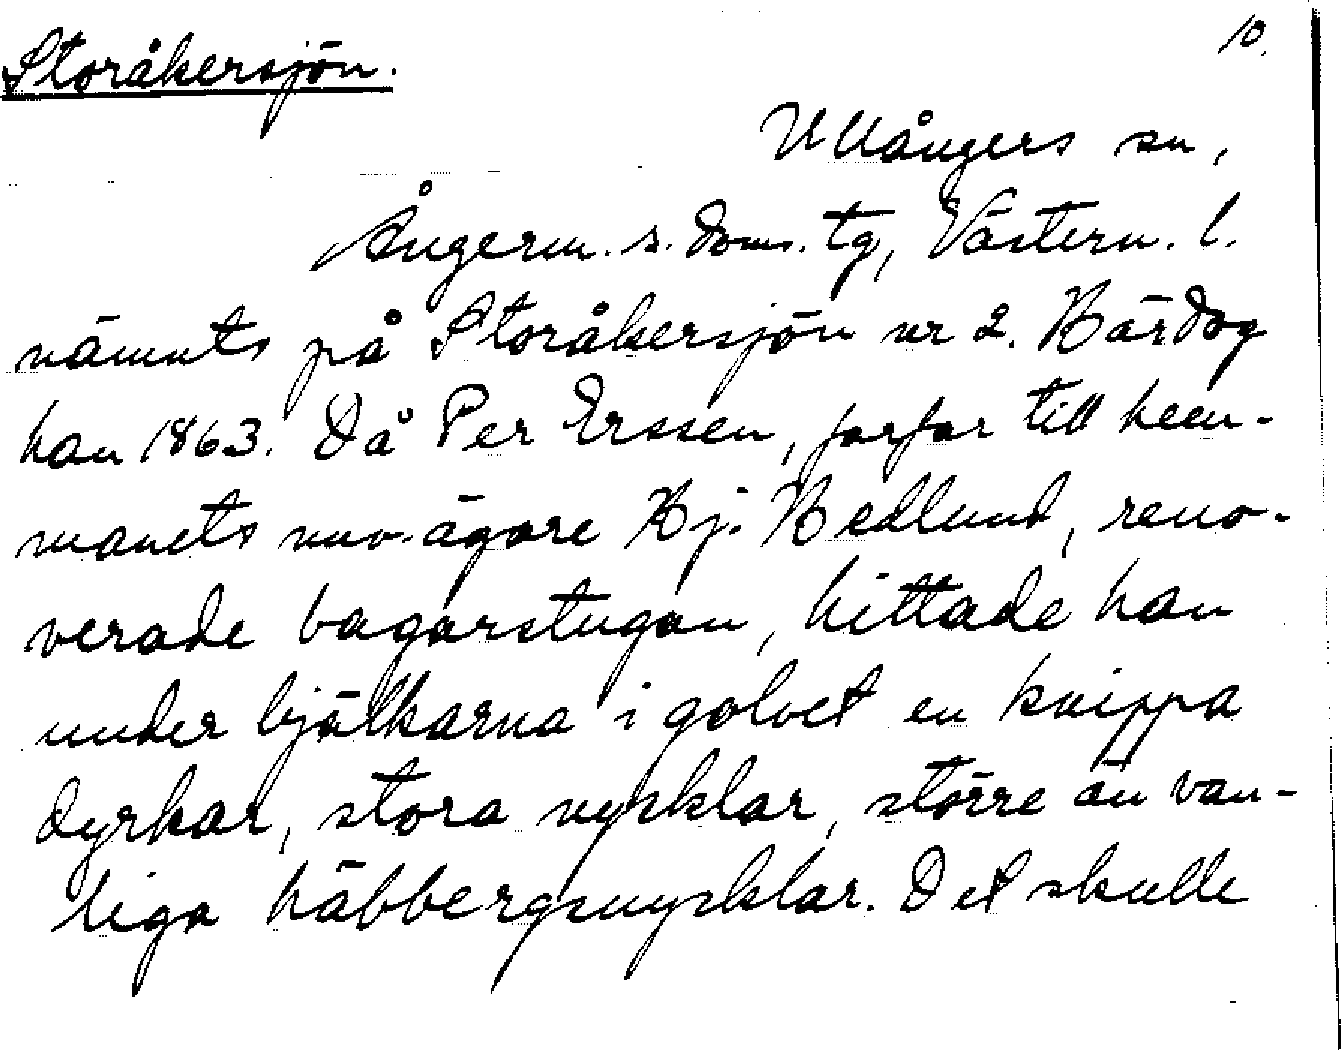 10.
Storåkersjön.
Ullångers sn,
Ångerm. s. doms. tg, Västern. l.
nämnts på Storåkersjön nr 2. Härdog
han 1863. Då Per Erssen, farfar till hem-
manets nuv. ägare Hj. Hedlund, reno-
verade bagarstugan, hittade han
under bjälkarna i golvet en knippa
dyrkar, stora nycklar, större än van-
liga häbbergsnycklar. Det skulle